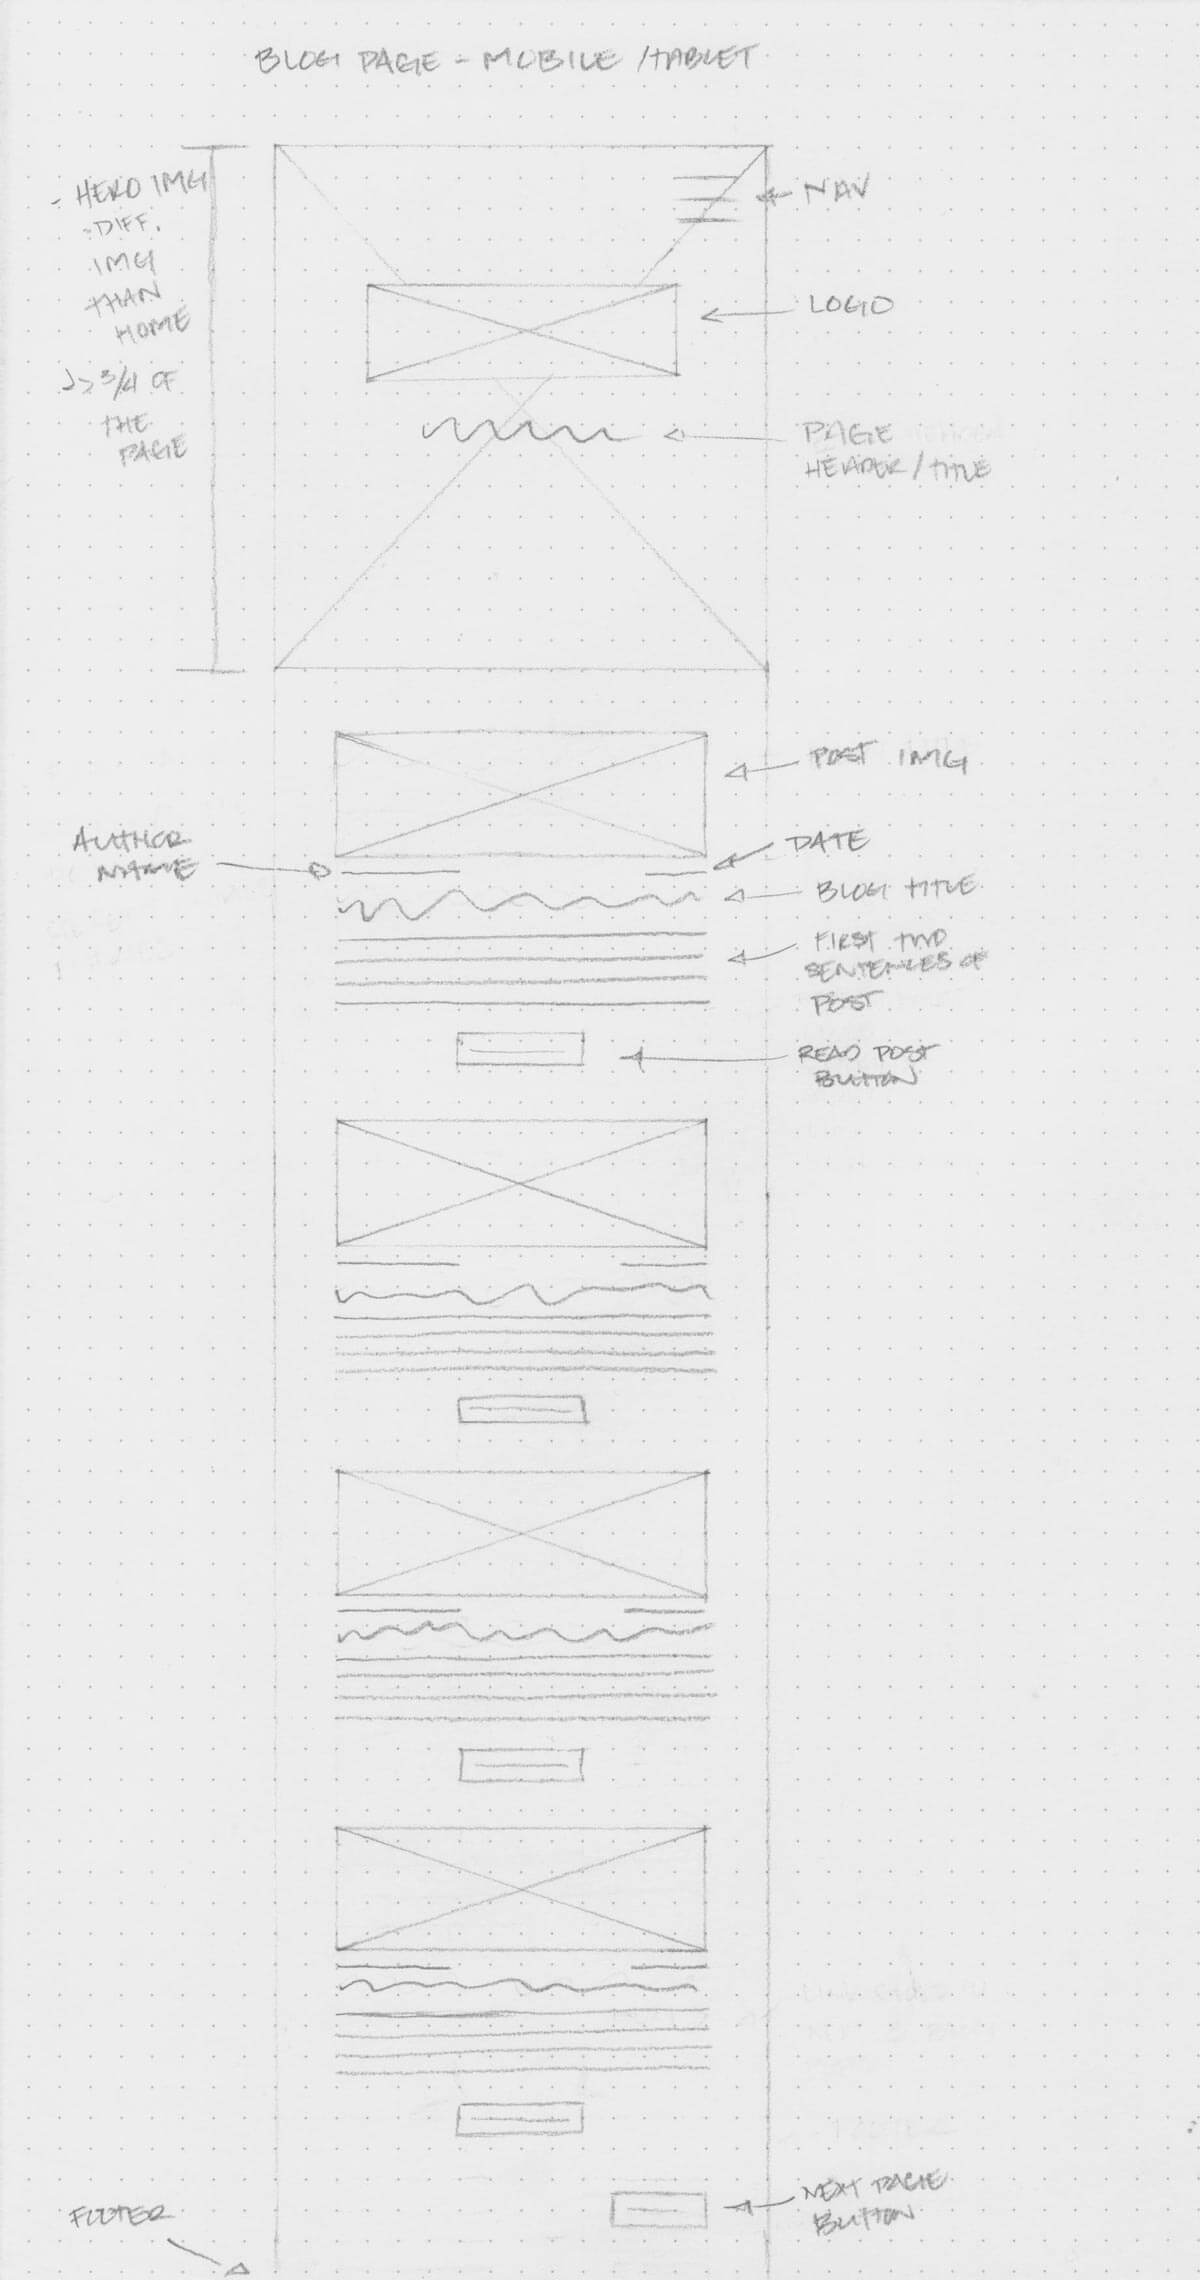 BLOG PAGE - MOBILE / TABLET
- HERO IMG
- DIFF.
IMG
THAN
HOME
↳ 3/4 OF
THE
PAGE
NAV
LOGO
PAGE
HEADER / TITLE
POST IMG
AUTHOR
NAME
DATE
BLOG TITLE
FIRST TWO
SENTENCES OF
POST
READ POST
BUTTON
NEXT PAGE
BUTTON
FOOTER